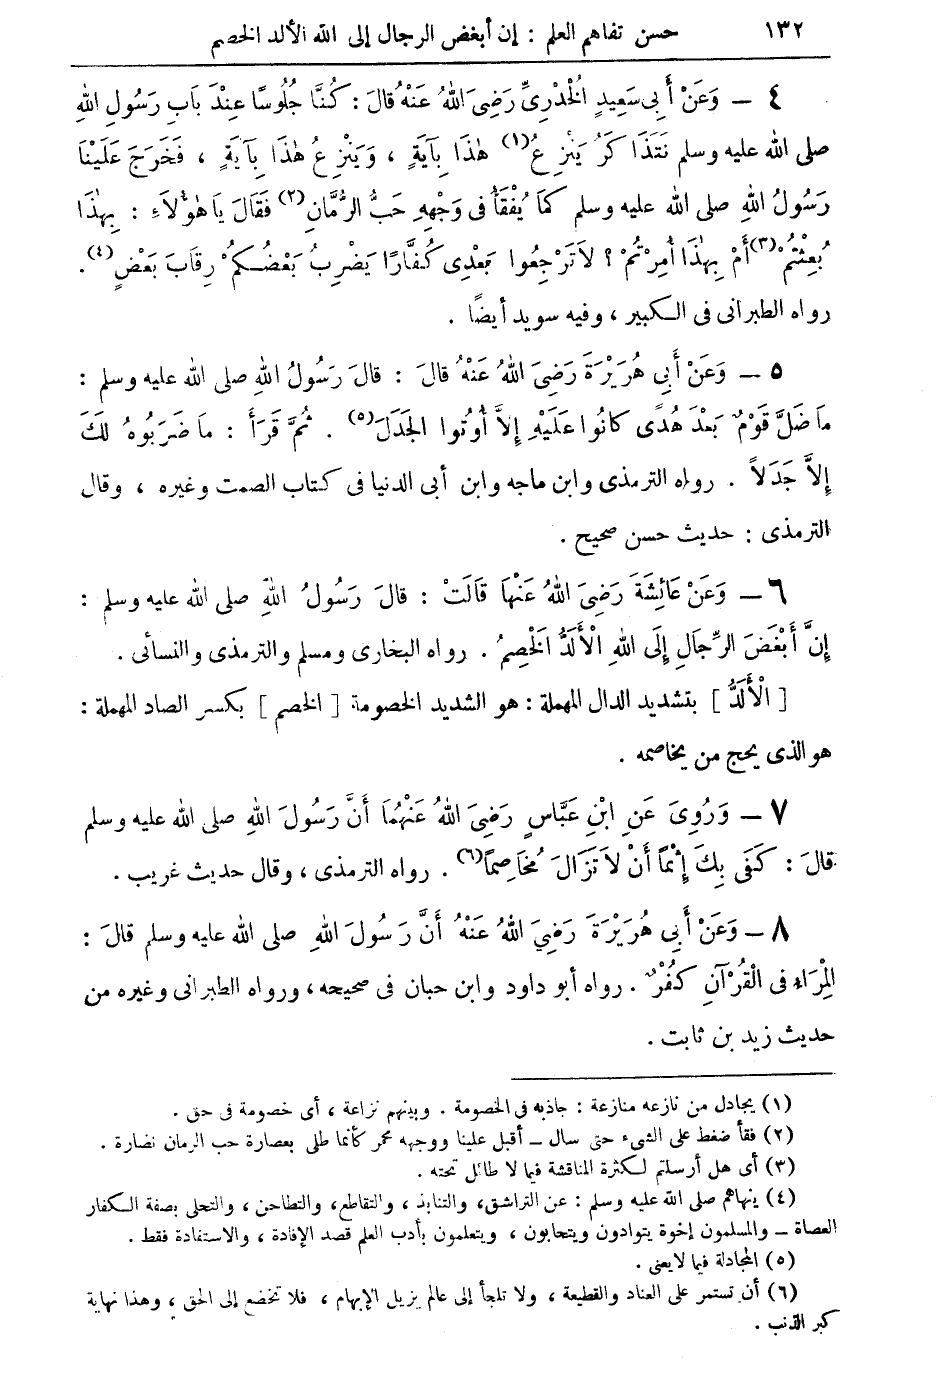 ١٣٢ حسن تفاهم العلم : إن أبغض الرجال إلى الله الألد الخصم
٤ – وَعَنْ أَبِي سَعِيدٍ الْخُدْرِيِّ رَضِيَ اللهُ عَنْهُ قَالَ : كُنَّا جُلُوسًا عِنْدَ بَابِ رَسُولِ اللهِ
صلى الله عليه وسلم نَتَذَاكَرُ يَنْزِعُ(١) هٰذَا بِآيَةٍ ، وَيَنْزِعُ هٰذَا بِآيَةٍ ، فَخَرَجَ عَلَيْنَا
رَسُولُ اللهِ صلى الله عليه وسلم كَمَا يُفْقَأُ فى وَجْهِهِ حَبُّ الرُّمَّانِ(٢) فَقَالَ يَا هٰؤُلَاءِ : بِهٰذَا
بُعِثْتُمْ(٣) أَمْ بِهٰذَا أُمِرْتُمْ ؟ لَا تَرْجِعُوا بَعْدِى كُفَّارًا يَضْرِبُ بَعْضُكُمْ رِقَابَ بَعْضٍ(٤).
رواه الطبرانى فى الكبير ، وفيه سويد أيضًا .
٥ – وَعَنْ أَبِي هُرَيْرَةَ رَضِيَ اللهُ عَنْهُ قَالَ : قَالَ رَسُولُ اللهِ صلى الله عليه وسلم :
مَا ضَلَّ قَوْمٌ بَعْدَ هُدًى كَانُوا عَلَيْهِ إِلاَّ أُوتُوا الْجَدَلَ(٥) . ثُمَّ قَرَأَ : مَا ضَرَبُوهُ لَكَ
إِلاَّ جَدَلاً . رواه الترمذى وابن ماجه وابن أبى الدنيا فى كتاب الصمت وغيره ، وقال
الترمذى : حديث حسن صحيح .
٦ – وَعَنْ عَائِشَةَ رَضِيَ اللهُ عَنْهَا قَالَتْ : قَالَ رَسُولُ اللهِ صلى الله عليه وسلم :
إِنَّ أَبْغَضَ الرِّجَالِ إِلَى اللهِ الْأَلَدُّ الْخَصِمُ . رواه البخارى ومسلم والترمذى والنسأئى .
[ الْأَلَدُّ ] بتشديد الدال المهملة : هو الشديد الخصومة [ الخصم ] بكسر الصاد المهملة :
هو الذى يحج من يخاصمه .
٧ – وَرُوِيَ عَنِ ابْنِ عَبَّاسٍ رَضِيَ اللهُ عَنْهُمَا أَنَّ رَسُولَ اللهِ صلى الله عليه وسلم
قَالَ : كَفَى بِكَ إِثْمًا أَنْ لَا تَزَالَ مُخَاصِمًا(٦) . رواه الترمذى ، وقال حديث غريب .
٨ – وَعَنْ أَبِى هُرَيْرَةَ رَضِيَ اللهُ عَنْهُ أَنَّ رَسُولَ اللهِ صلى الله عليه وسلم قَالَ :
الْمِرَاءِ فى الْقُرْآنِ كُفْرٌ . رواه أبو داود وابن حبان فى صحيحه ، ورواه الطبرانى وغيره من
حديث زيد بن ثابت .
(١) يجادل من نازعه منازعة : جاذبه فى الخصومة . وبينهم نزاعة ، أى خصومة فى حق .
(٢) فقأ ضغط على الشىء حتى سال – أقبل علينا ووجهه محمر كأنما طلى بعصارة حب الرمان نضارة .
(٣) أى هل أرسلتم لكثرة المناقشة فيما لا طائل تحته .
(٤) ينهاهم صلى الله عليه وسلم : عن التراشق، والتنابذ ، والتقاطع، والتطاحن ، والتحلى بصفة الكفار
العصاة – والمسلمون إخوة يتوادون ويتحابون ، ويتعلمون بأدب العلم قصد الإفادة ، والاستفادة فقط .
(٥) المجادلة فيما لا يعنى .
(٦) أن تستمر على العناد والقطيعة ، ولا تلجأ إلى عالم يزيل الإبهام ، فلا تخضع إلى الحق ، وهذا نهاية
كبر الذنب .